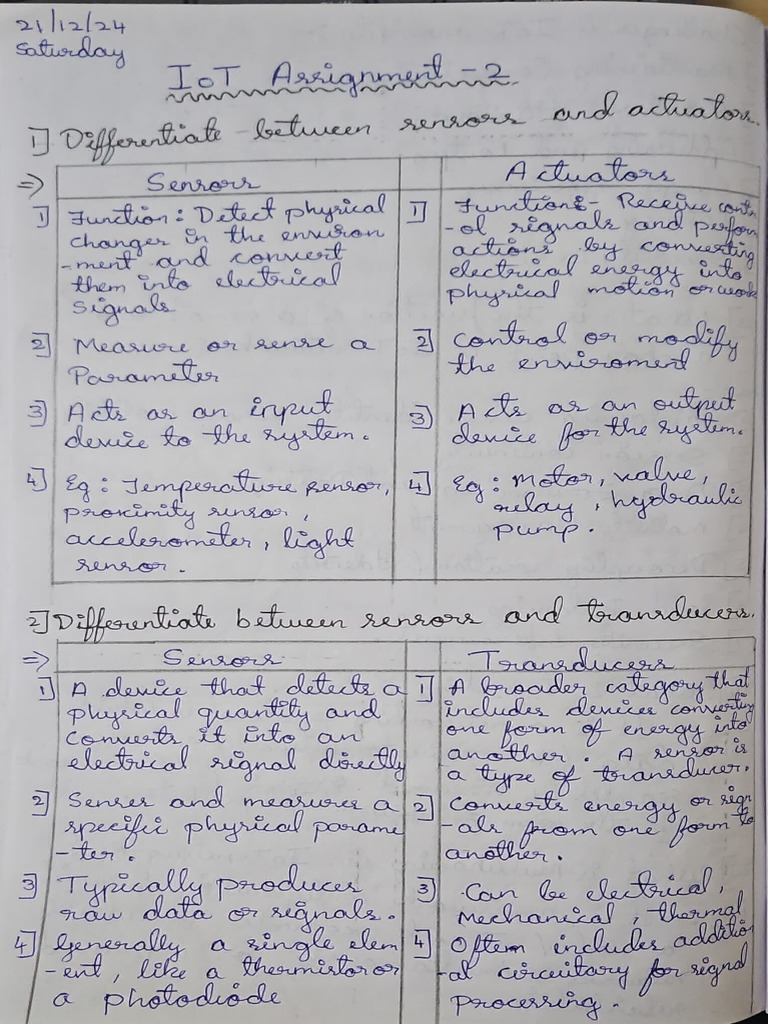 21/12/24
Saturday
IoT Assignment - 2
1] Differentiate between sensors and actuators.
=> Sensors
1] Function: Detect physical
changes in the environ
-ment and convert
them into electrical
signals
2] Measure or sense a
Parameter
3] Acts as an input
device to the system.
4] Eg: Temperature sensor,
proximity sensor,
accelerometer, light
sensor.
Actuators
1] Function:- Receive contr
-ol signals and perform
actions by converting
electrical energy into
physical motion or work
2] Control or modify
the enviroment
3] Acts as an output
device for the system.
4] Eg: Motor, valve,
relay, hydraulic
pump.
2] Differentiate between sensors and transducers.
=> Sensors
1] A device that detects a
physical quantity and
converts it into an
electrical signal directly
2] Senses and measures a
specific physical parame
-ter.
3] Typically produces
raw data or signals.
4] Generally a single elem
-ent, like a thermistor or
a photodiode
Transducers
1] A broader category that
includes devices converting
one form of energy into
another. A sensor is
a type of transducer.
2] Converts energy or sign
-als from one form to
another.
3] Can be electrical,
Mechanical, thermal
4] Often includes addition
-al circuitory for signal
processing.